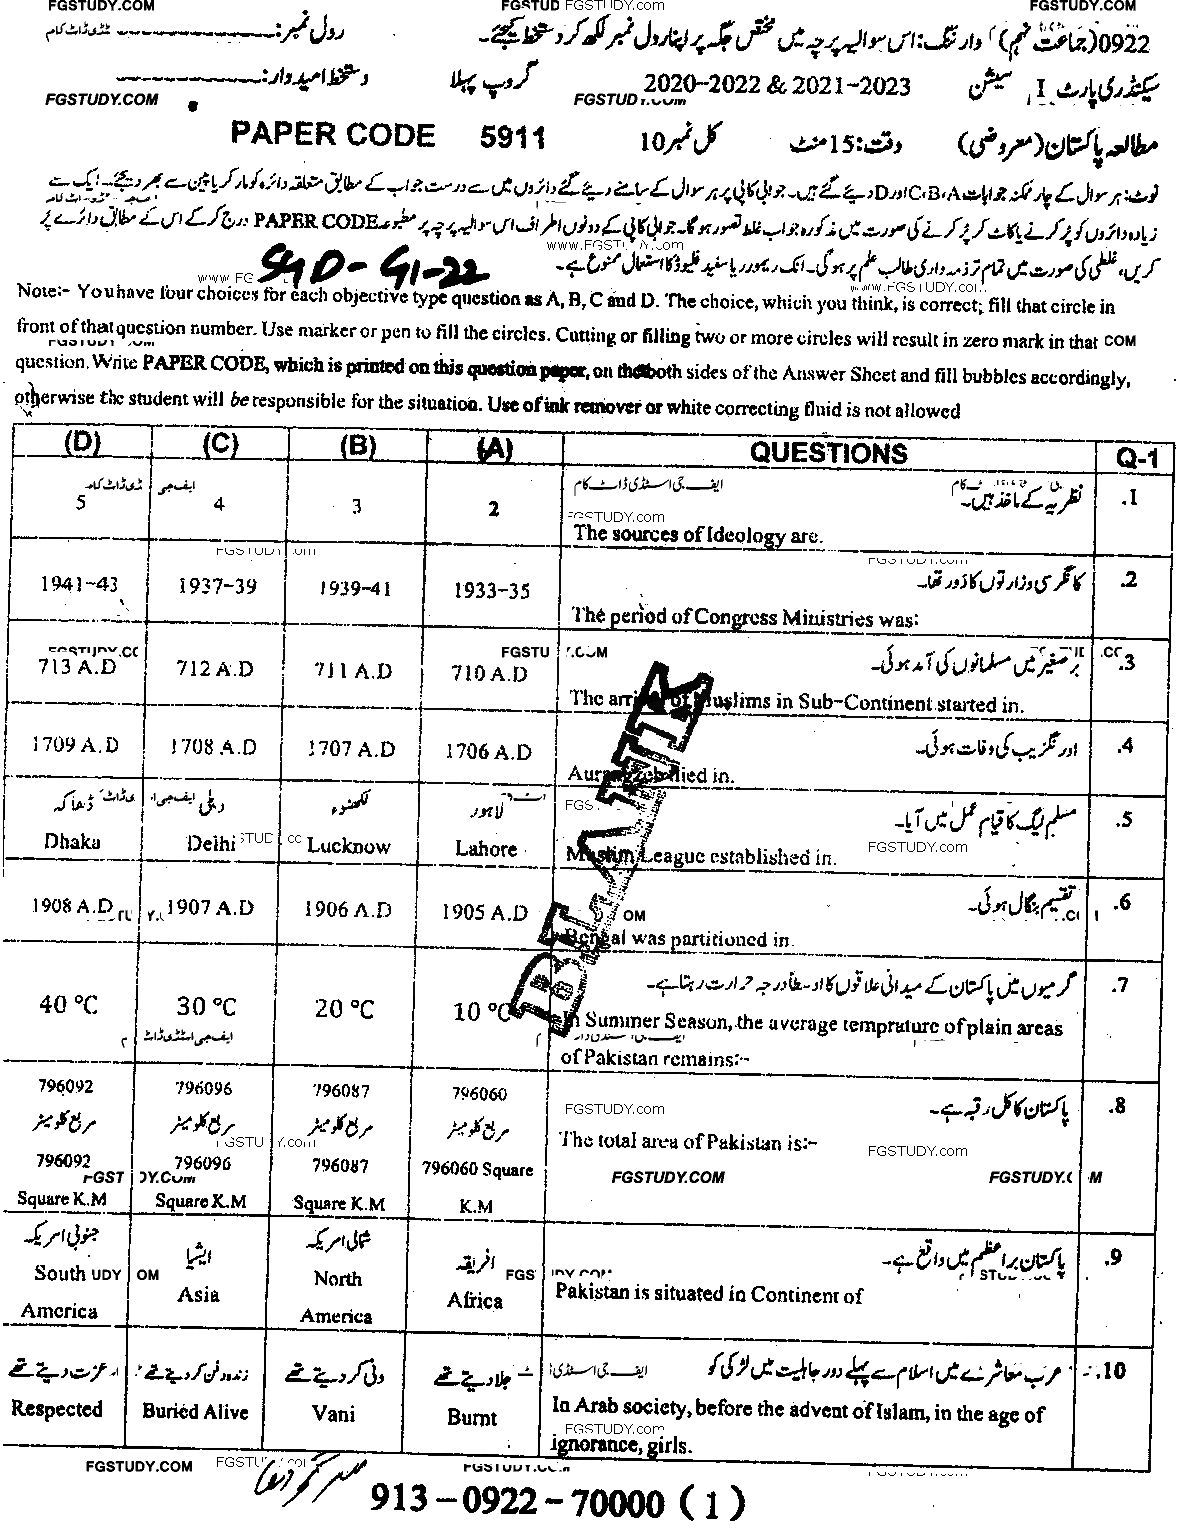 FGSTUDY.COM FGSTUD FGSTUDY.com FGSTUDY.COM
0922(جماعت نہم) وارننگ: اس سوالیہ پرچہ میں مختص جگہ پر اپنا رول نمبر لکھ کر دستخط کیجئے۔ رول نمبر:
سیکنڈری پارٹ I سیشن 2020-2022 & 2021-2023 گروپ پہلا دستخط امیدوار:
FGSTUDY.COM
مطالعہ پاکستان(معروضی) وقت: 15 منٹ کل نمبر 10 PAPER CODE 5911
نوٹ: ہر سوال کے چار ممکنہ جوابات A، B، C اور D دیئے گئے ہیں۔ جوابی کاپی پر ہر سوال کے سامنے دیئے گئے دائروں میں سے درست جواب کے مطابق متعلقہ دائرہ کو مارکر یا پین سے بھر دیجئے۔ ایک سے
زیادہ دائروں کو پُر کرنے یا کاٹ کر پُر کرنے کی صورت میں مذکورہ جواب غلط تصور ہوگا۔ جوابی کاپی کے دونوں اطراف اس سوالیہ پرچہ پر مطبوعہ PAPER CODE درج کر کے اس کے مطابق دائرے پُر
کریں، غلطی کی صورت میں تمام تر ذمہ داری طالب علم پر ہوگی۔ انک ریموور یا سفید فلیوڈ کا استعمال ممنوع ہے۔
SGD-G1-22
Note:- You have four choices for each objective type question as A, B, C and D. The choice, which you think, is correct; fill that circle in
front of that question number. Use marker or pen to fill the circles. Cutting or filling two or more circles will result in zero mark in that
question. Write PAPER CODE, which is printed on this question paper, on the both sides of the Answer Sheet and fill bubbles accordingly,
otherwise the student will be responsible for the situation. Use of ink remover or white correcting fluid is not allowed
(D) (C) (B) (A) QUESTIONS Q-1
نظریہ کے ماخذ ہیں۔ .1
5 4 3 2
The sources of Ideology are.
کانگرسی وزارتوں کا دَور تھا۔ .2
1941-43 1937-39 1939-41 1933-35
The period of Congress Ministries was:
برصغیر میں مسلمانوں کی آمد ہوئی۔ .3
713 A.D 712 A.D 711 A.D 710 A.D
The arrival of Muslims in Sub-Continent started in.
اورنگزیب کی وفات ہوئی۔ .4
1709 A.D 1708 A.D 1707 A.D 1706 A.D
Aurangzeb died in.
مسلم لیگ کا قیام عمل میں آیا۔ .5
ڈھاکہ دہلی لکھنؤ لاہور
Dhaka Delhi Lucknow Lahore
Muslim League established in.
تقسیم بنگال ہوئی۔ .6
1908 A.D 1907 A.D 1906 A.D 1905 A.D
Bengal was partitioned in.
گرمیوں میں پاکستان کے میدانی علاقوں کا اوسطاً درجہ حرارت رہتا ہے۔ .7
40 °C 30 °C 20 °C 10 °C
In Summer Season, the average temprature of plain areas
of Pakistan remains:-
BLANK
796092 796096 796087 796060
مربع کلومیٹر مربع کلومیٹر مربع کلومیٹر مربع کلومیٹر
پاکستان کا کل رقبہ ہے۔ .8
The total area of Pakistan is:-
796092 796096 796087 796060 Square
Square K.M Square K.M Square K.M K.M
FGSTUDY.COM
جنوبی امریکہ ایشیا شمالی امریکہ افریقہ
پاکستان براعظم میں واقع ہے۔ .9
South America Asia North America Africa
Pakistan is situated in Continent of
عرب معاشرے میں اسلام سے پہلے دور جاہلیت میں لڑکی کو .10
عزت دیتے تھے زندہ دفن کر دیتے تھے ونی کر دیتے تھے جلا دیتے تھے
Respected Buried Alive Vani Burnt
In Arab society, before the advent of Islam, in the age of
ignorance, girls.
FGSTUDY.COM
913-0922-70000 (1)